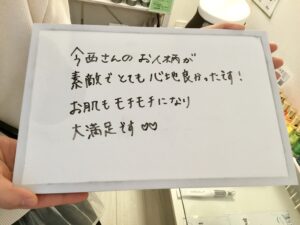 今西さんのお人柄が
素敵でとても心地良かったです！
お肌もモチモチになり
大満足です♡♡